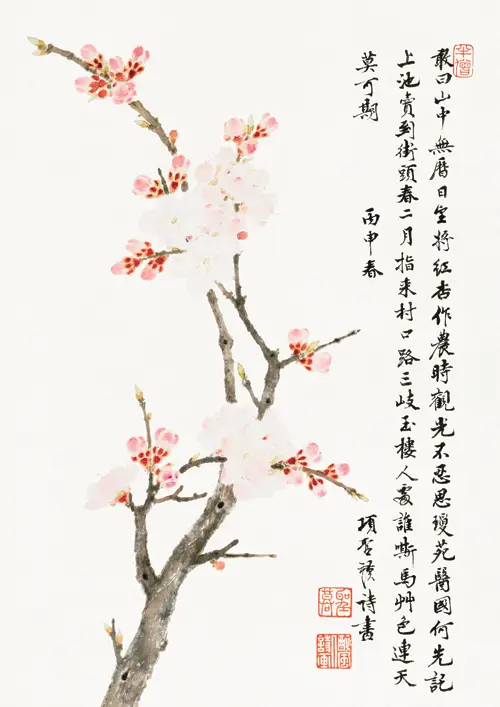 半僧
敢曰山中無曆日空將紅杏作農時觀光不忍思瓊苑醫國何先記
上池賣到街頭春二月指來村口路三岐玉樓人處誰嘶馬艸色連天
莫可期
丙申春
項詩書